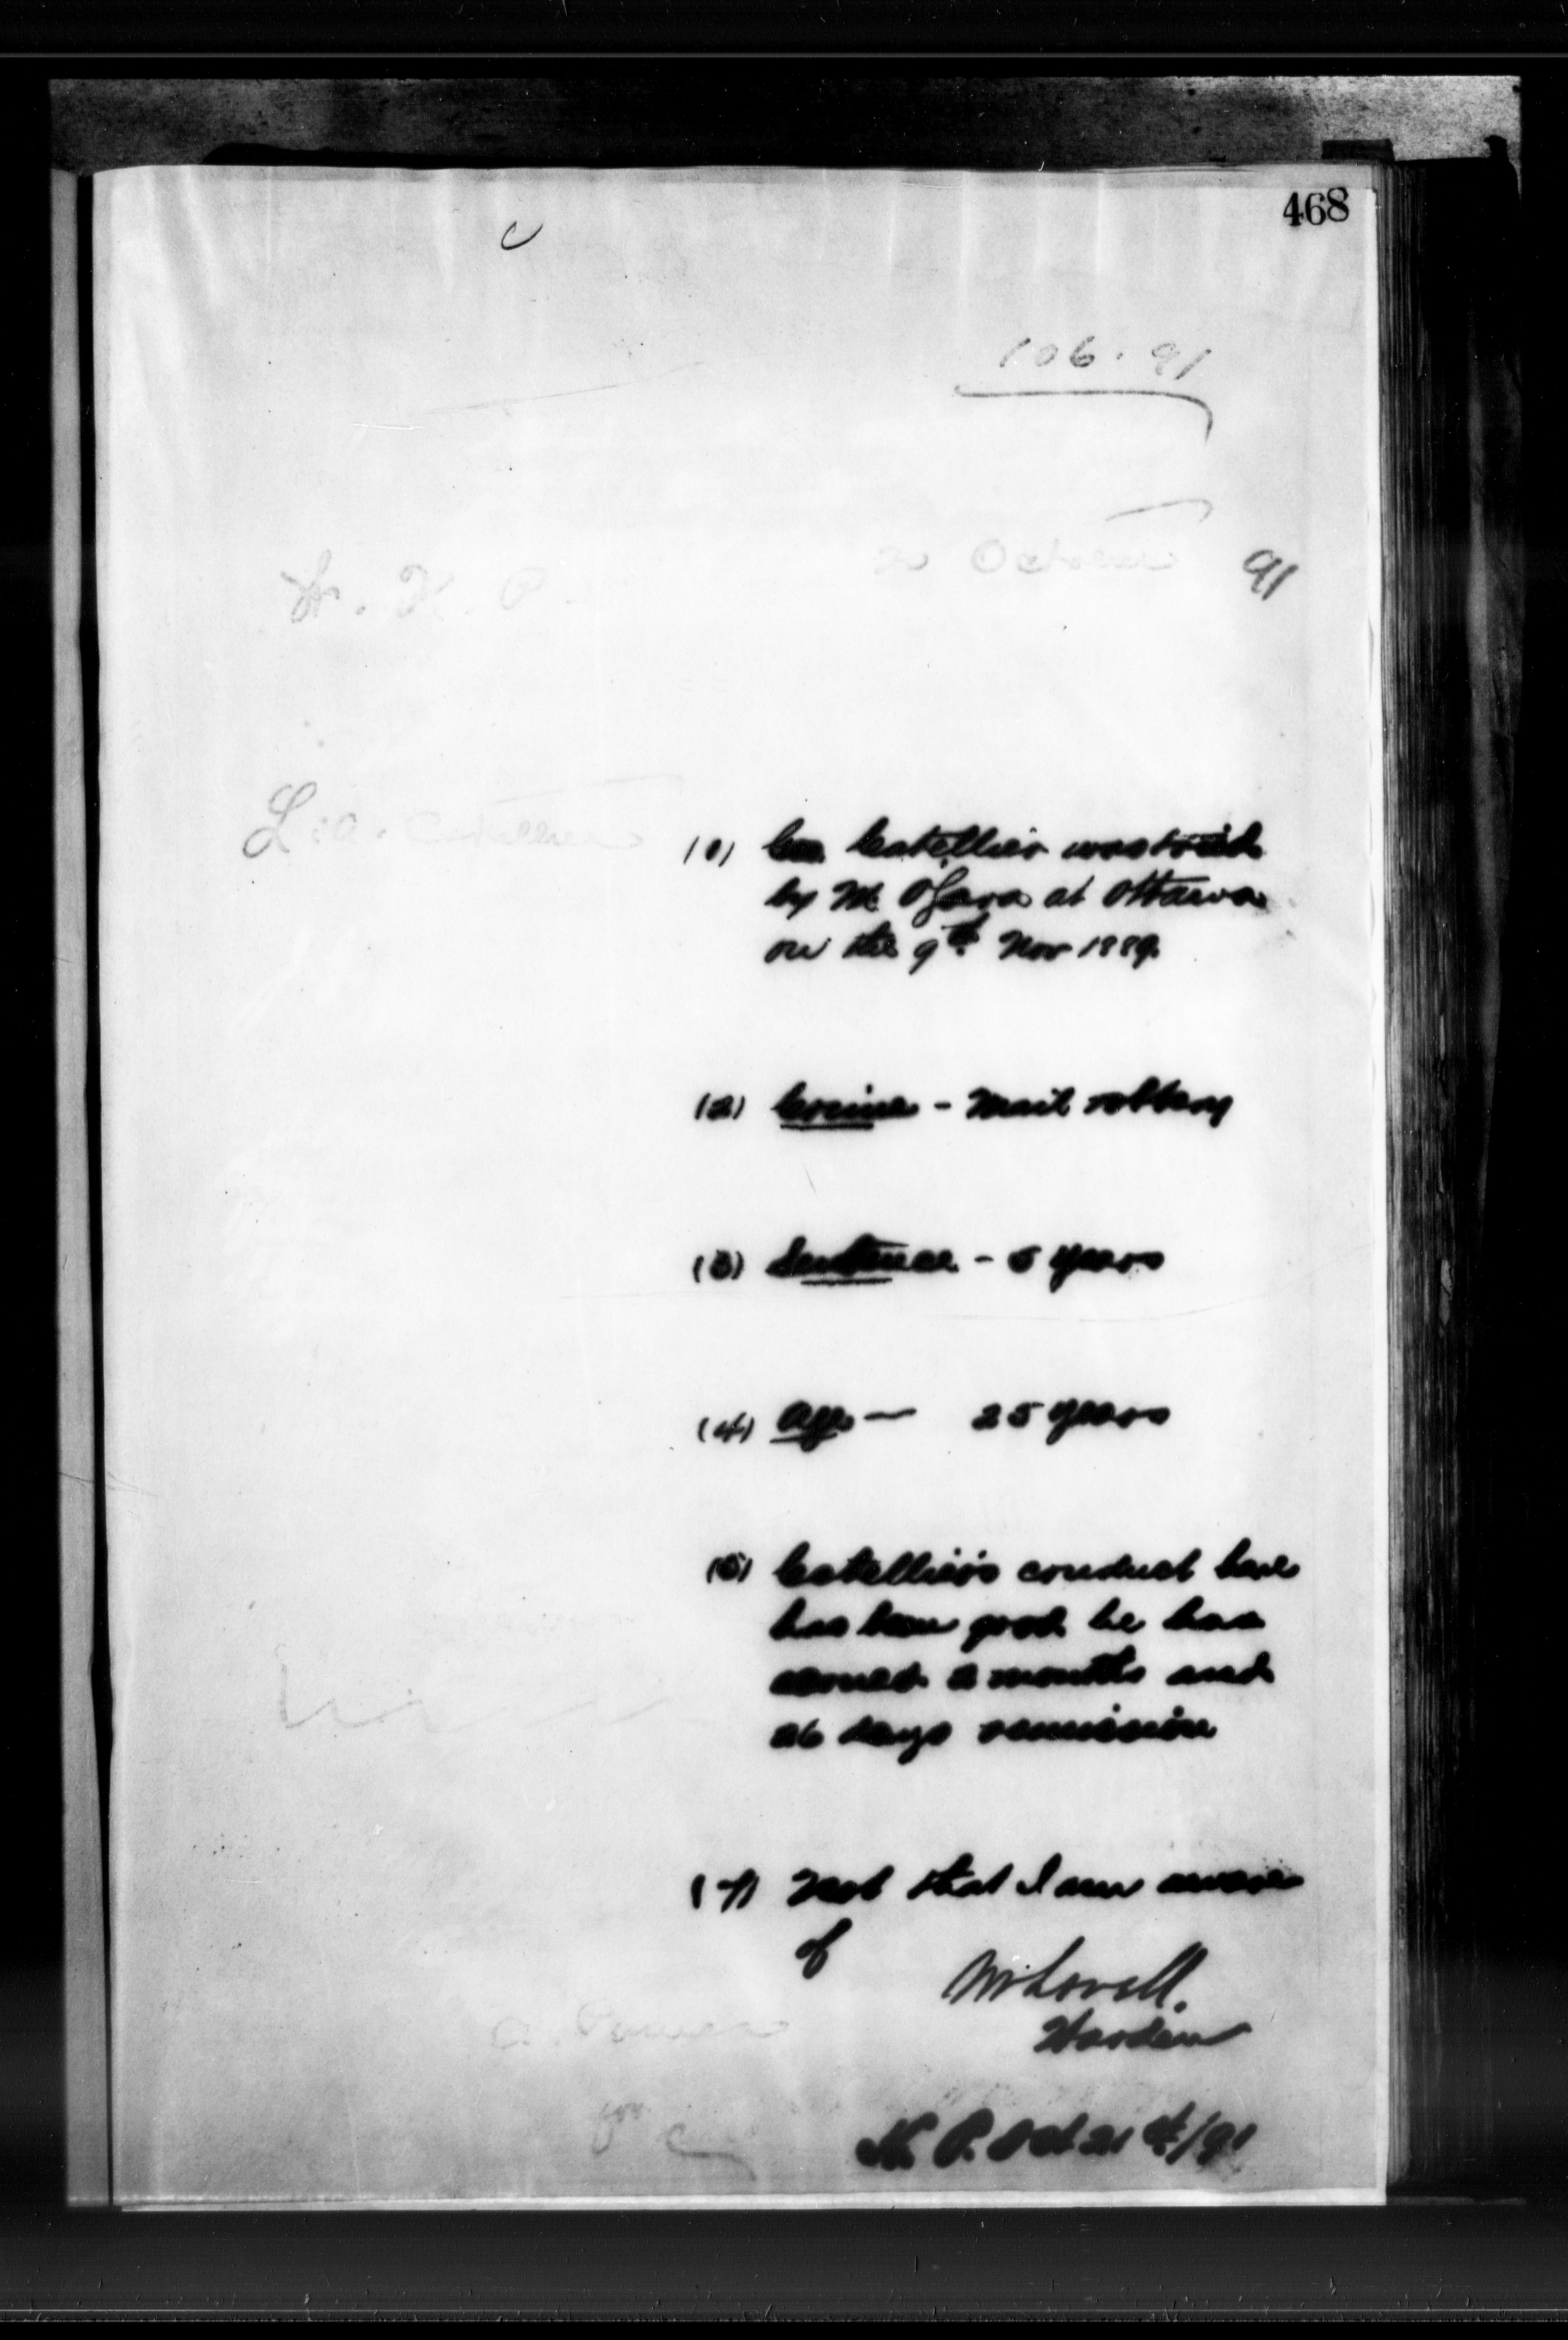 468
106.91
20 October 91
W. K. P.
L. A. Catellier
(1) Con Catellier was tried
by Mr O'Gara at Ottawa
on the 9th Nov 1889.
(2) Crime - Mail robbery
(3) Sentence - 5 years
(4) Age — 25 years
(5) Catellier's conduct here
has been good he has
earned 2 months and
26 days remission
(7) Not that I am aware
of
M Lavell.
Warden
K. P. Oct 21st/91